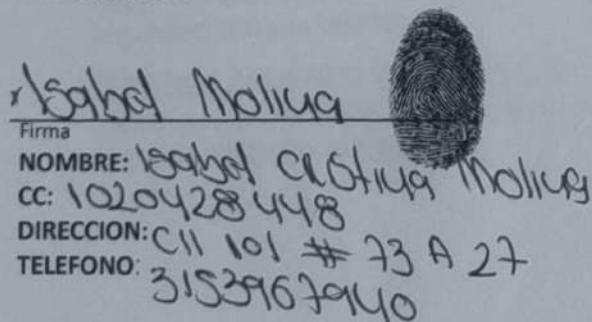 Isabel Molina
Firma
NOMBRE: Isabel Cristina Molina
CC: 1020428448
DIRECCION: Cll 101 # 73 A 27
TELEFONO: 3153967940